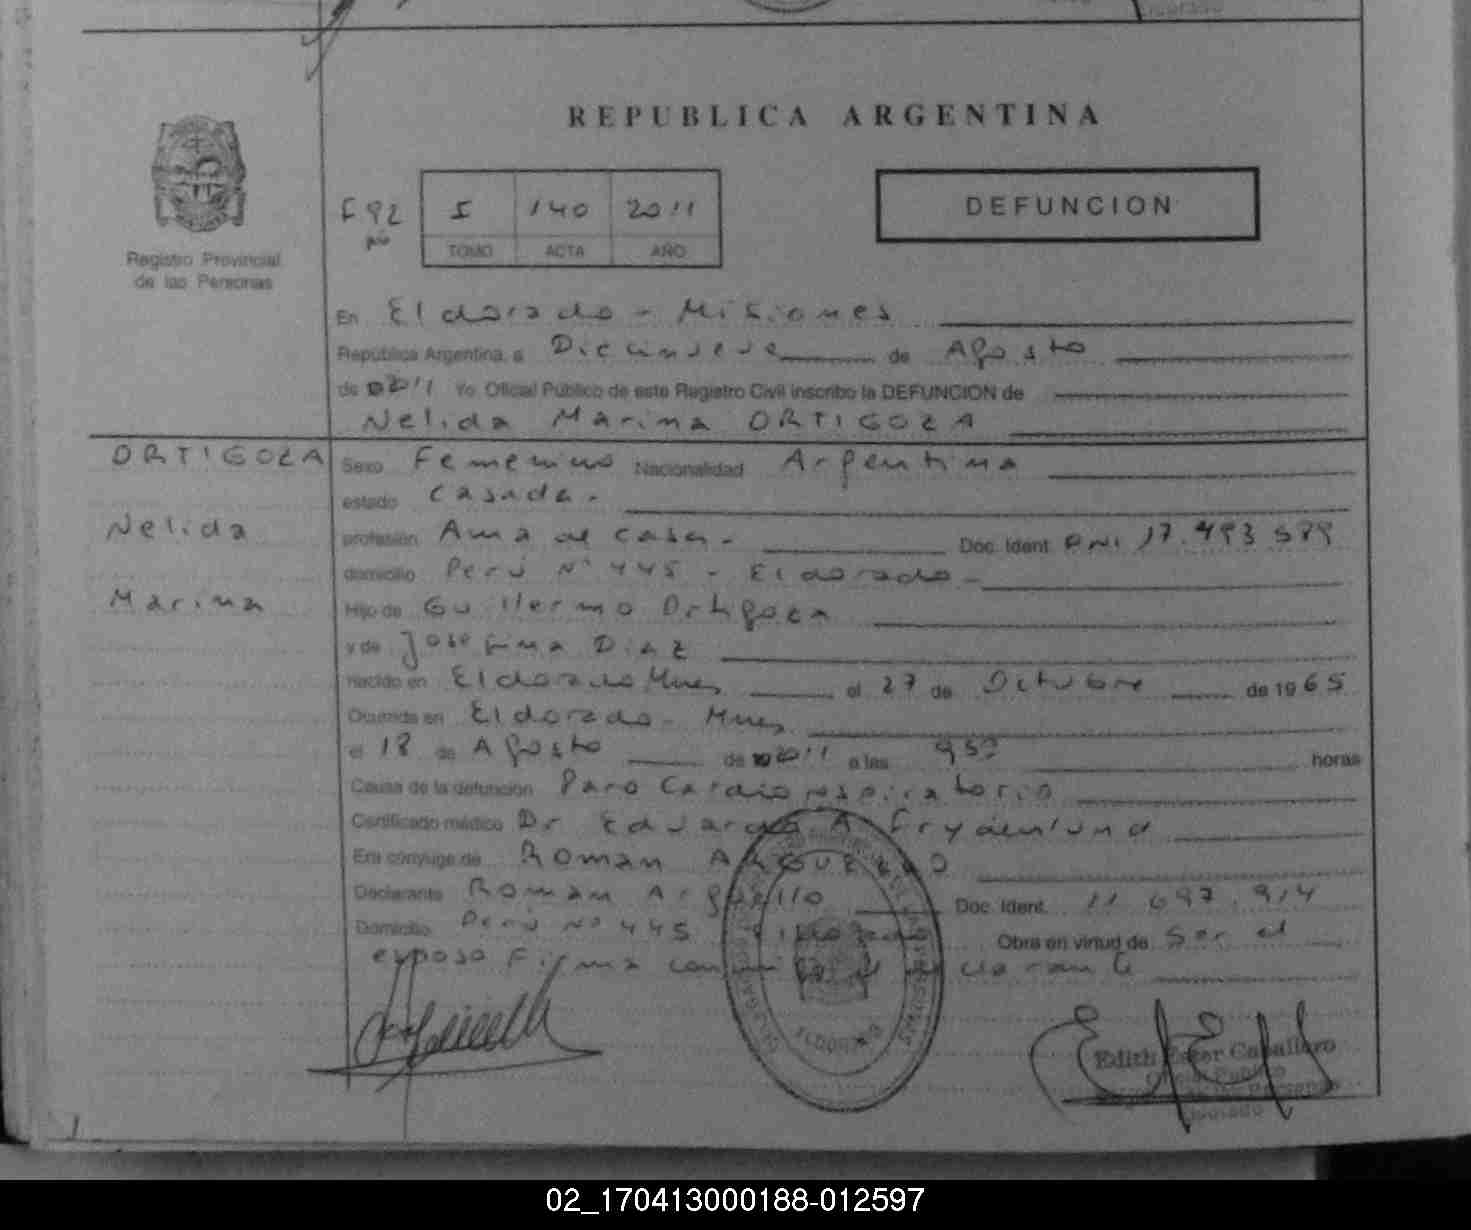 REPUBLICA ARGENTINA
F 92
I 140 2011
TOMO ACTA AÑO
DEFUNCION
Registro Provincial
de las Personas
En Eldorado - Misiones
República Argentina, a Diecinueve de Agosto
de 2011 Yo Oficial Público de este Registro Civil inscribo la DEFUNCION de
Nelida Marina ORTIGOZA
ORTIGOZA
Nelida
Marina
Sexo Femenino Nacionalidad Argentina
estado Casada.
profesión Ama de casa. Doc. Ident. DNI 17.493.589
domicilio Perú Nº 445 - Eldorado
Hijo de Guillermo Ortigoza
y de Josefina Diaz
nacido en Eldorado Mnes el 27 de Octubre de 1965
Ocurrida en Eldorado - Mnes
el 18 de Agosto de 2011 a las horas
Causa de la defunción Paro Cardiorespiratorio
Certificado médico Dr Eduardo A Frydenlund
Era cónyuge de Roman ARGUELLO
Declarante Roman Arguello Doc. Ident. 11.697.914
Domicilio Perú Nº 445 Eldorado Obra en virtud de Ser el
esposo Firma conmigo el declarante
ELDORADO
Edith Ester Caballero
Oficial Publico
02_170413000188-012597